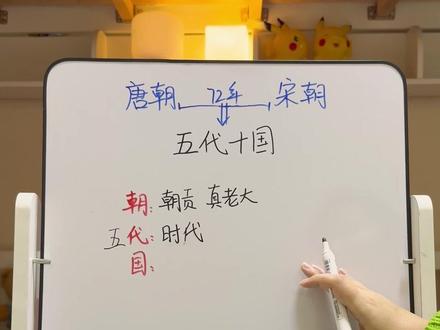 唐朝 72年 宋朝
五代十国
朝：朝贡 真老大
五代：时代
国：